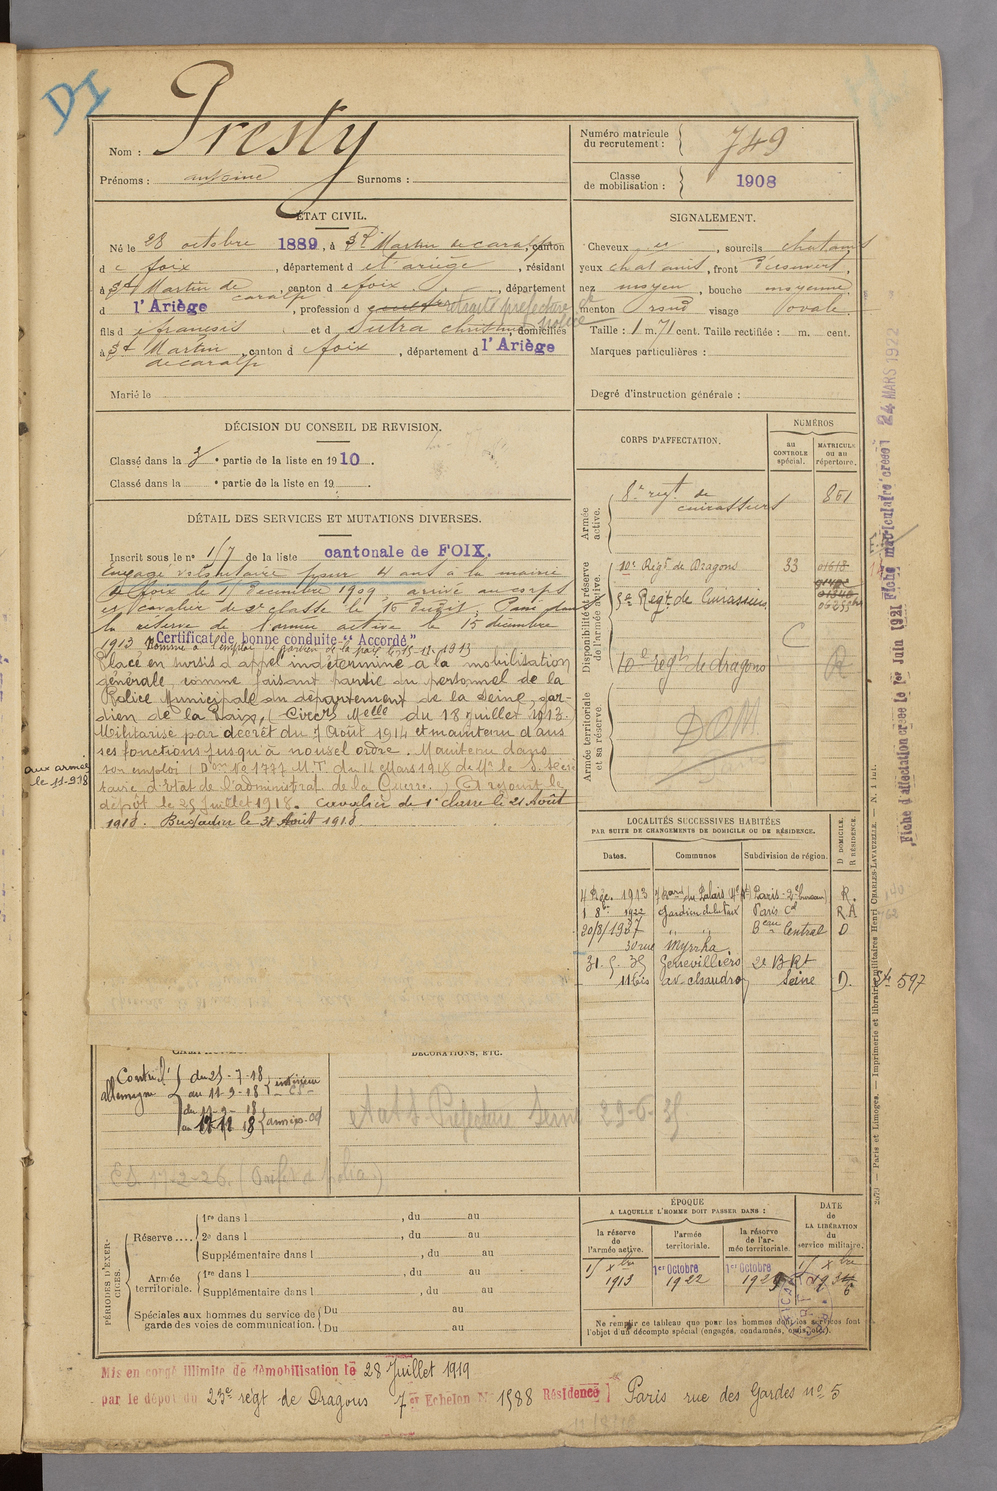 DI
Nom : Presty
Prénoms : antoine Surnoms :
Numéro matricule du recrutement : 749
Classe de mobilisation : 1908
ÉTAT CIVIL.
Né le 28 octobre 1889, à St Martin de caralp, canton
d e foix, département d et ariège, résidant
à St Martin de caralp, canton d e foix, département
d l'Ariège, profession d retraité préfecture de police
fils d e françois et d Sutra christine, domiciliés
à St Martin de caralp, canton d foix, département d l'Ariège
Marié le
SIGNALEMENT.
Cheveux , sourcils chatains
yeux chatains, front découvert,
nez moyen, bouche moyenne
menton rond visage ovale.
Taille : 1 m. 71 cent. Taille rectifiée : m. cent.
Marques particulières :
Degré d'instruction générale :
DÉCISION DU CONSEIL DE REVISION.
Classé dans la partie de la liste en 1910.
Classé dans la partie de la liste en 19 .
DÉTAIL DES SERVICES ET MUTATIONS DIVERSES.
Inscrit sous le n° 17 de la liste cantonale de FOIX.
Engagé volontaire pour 4 ans à la mairie
de foix le 15 décembre 1909, arrivé au corps
et cavalier de 2e classe le 16 dudit. Passé dans
la réserve de l'armée active le 15 décembre
1913 "Certificat de bonne conduite "Accordé"
Nommé à l'emploi de gardien de la paix le 15-11-1913
Placé en sursis d'appel indéterminé à la mobilisation
générale, comme faisant partie du personnel de la
Police Municipale du département de la Seine, gar-
dien de la Paix, (Circre Melle du 18 juillet 1913.
Militarisé par décret du 7 Août 1914 et maintenu dans
ses fonctions jusqu'à nouvel ordre. Maintenu dans
son emploi (Don No 1777 M.T. du 14 Mars 1918 de Mr le S. Secré
taire d'état de l'administrat. de la Guerre.) Et rejoint le
dépôt le 25 Juillet 1918. Cavalier de 1e classe le 21 Août
1918. Brigadier le 31 Août 1918.
aux armées
le 11-9-18
CORPS D'AFFECTATION.
NUMÉROS
au CONTROLE spécial.
MATRICULE ou au répertoire.
Armée active.
8e régt de cuirassiers 861
Disponibilité et réserve de l'armée active.
10e Régt de Dragons 33
5e Regt de Cuirassiers
C
10e régt de dragons R
Armée territoriale et sa réserve.
DOM
LOCALITÉS SUCCESSIVES HABITÉES
PAR SUITE DE CHANGEMENTS DE DOMICILE OU DE RÉSIDENCE.
Dates. Communes Subdivision de région. D DOMICILE. R RÉSIDENCE.
4 Déc. 1913 7 Bard du Palais 4e Paris-2e bureau R.
1 8bre 1922 Gardien de la Paix Paris Cal RA
20/8/1927 " " Beau Central D
30 rue Myrrha
31.5.35 Gennevilliers 2e B Rt
11bis av. chandron Seine D.
597
DÉCORATIONS, ETC.
Contre l'allemagne
du 25-7-18 au 11-9-18 intérieur
du 11-9-18 au armées
Etat S. Préfecture Seine 29-6-35
ES. 17-2-26.
PÉRIODES D'EXERCICES.
Réserve....
1re dans l , du au
2e dans l , du au
Supplémentaire dans l , du au
Armée territoriale.
1re dans l , du au
Supplémentaire dans l , du au
Spéciales aux hommes du service de garde des voies de communication.
Du au
Du au
ÉPOQUE
A LAQUELLE L'HOMME DOIT PASSER DANS :
la réserve de l'armée active.
l'armée territoriale.
la réserve de l'armée territoriale.
DATE de LA LIBÉRATION du service militaire.
15 Xbre 1913
1er Octobre 1922
1er Octobre
15 Xbre
Ne remplir ce tableau que pour les hommes dont les services font
l'objet d'un décompte spécial (engagés, condamnés, omis, etc.).
Mis en congé illimité de démobilisation le 28 Juillet 1919
par le dépôt du 23e régt de Dragons 7er Echelon N° 1588 Résidence Paris rue des Gardes no 5
Fiche d'affectation créée le 1er Juin 1921 Fiche matriculaire créée 24 MARS 1922
2079 — Paris et Limoges. — Imprimerie et librairie militaires Henri CHARLES-LAVAUZELLE. — N. 1 int.